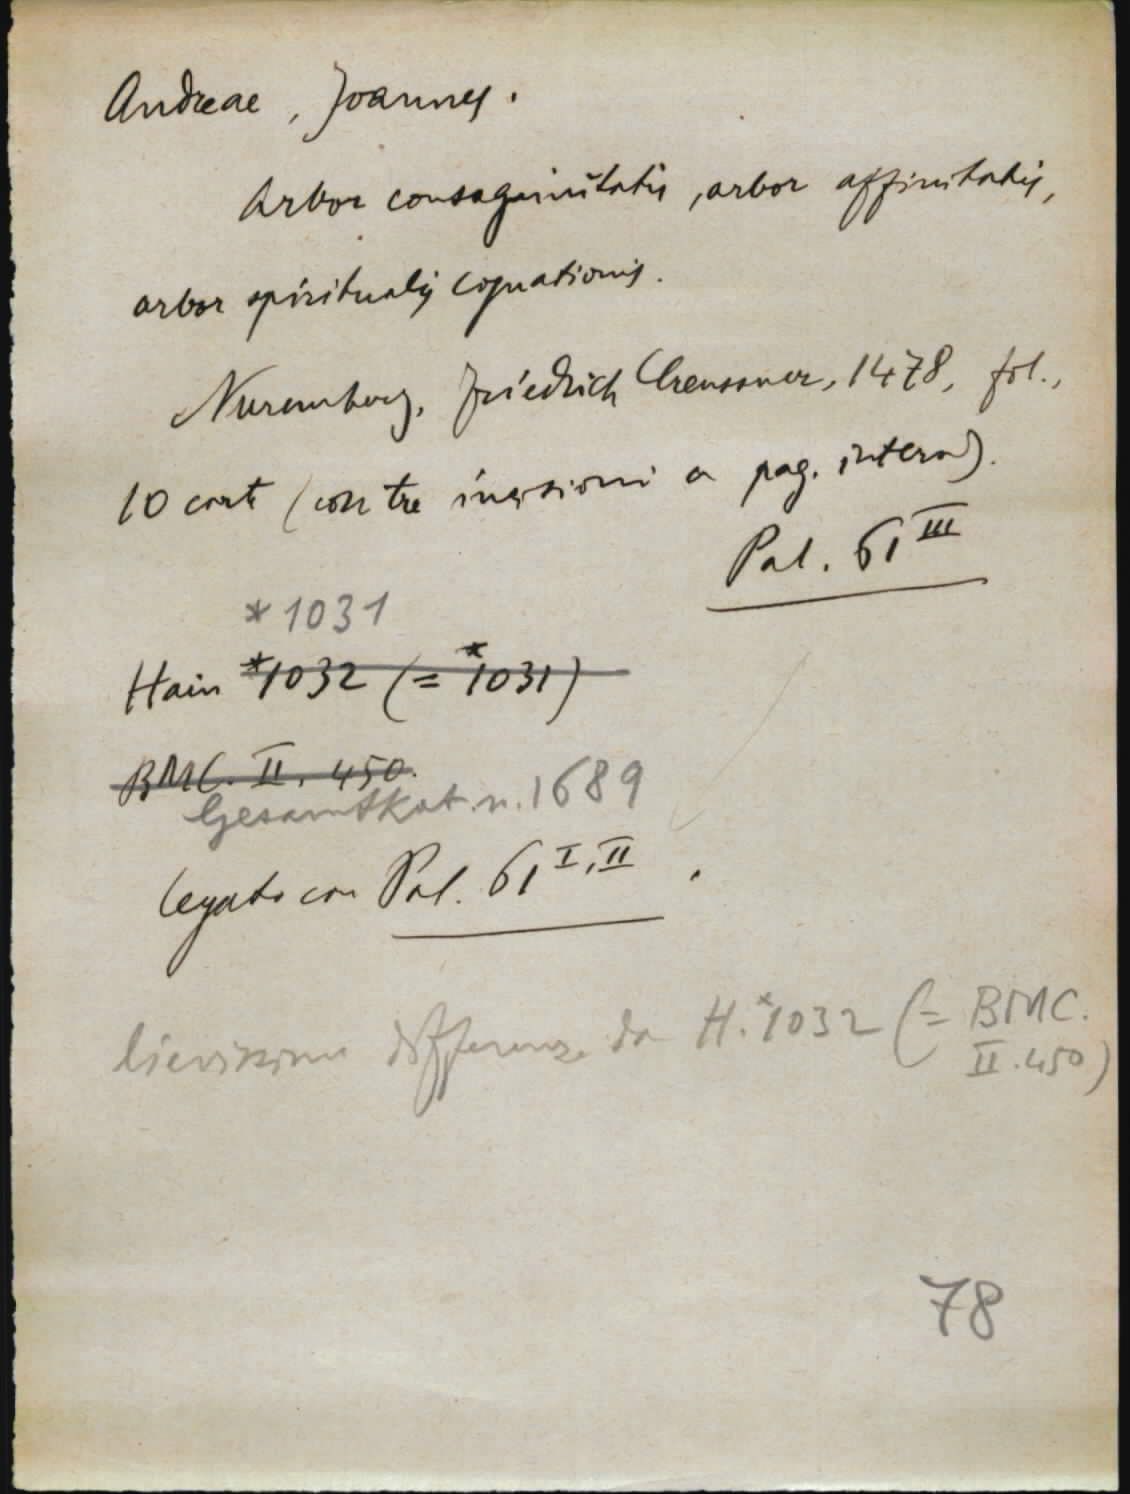 Andreae, Joannes.
Arbor consaguinitatis, arbor affinitatis,
arbor spiritualis cognationis.
Nuremberg, Friedrich Creussner, 1478, fol.,
10 carte (con tre incisioni a pag. intera).
Pal. 61 III
*1031
Hain *1032 (= *1031)
BMC. II. 450.
Gesamtkat. n. 1689
legato con Pal. 61 I, II.
lievissime differenze da H. *1032 (= BMC.
II. 450)
78